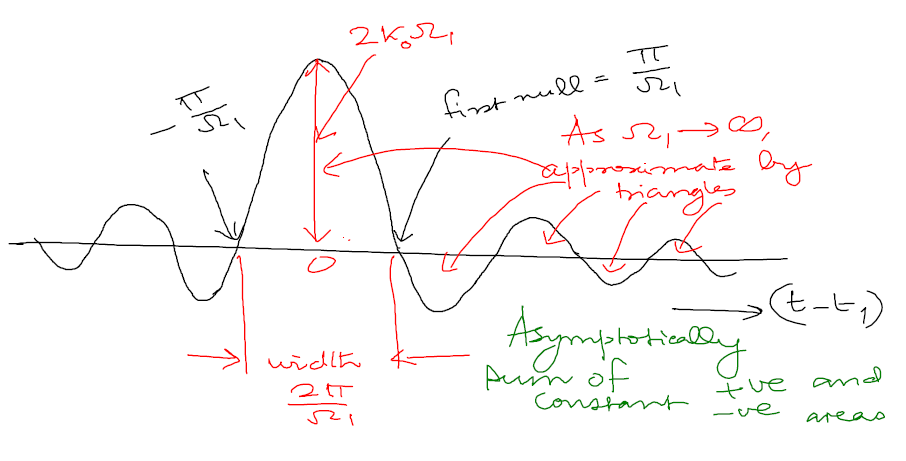 2K₀Ω₁
first null = π/Ω₁
- π/Ω₁
As Ω₁ → ∞,
approximate by
triangles
0
(t-t₁)
width
2π/Ω₁
Asymptotically
sum of
constant +ve and
-ve areas